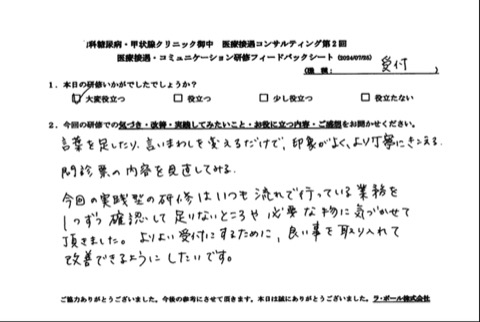 科糖尿病・甲状腺クリニック御中 医療接遇コンサルティング第2回
医療接遇・コミュニケーション研修フィードバックシート (2024/07/25)
(職種: 受付 )
1.本日の研修いかがでしたでしょうか?
☑大変役立つ □役立つ □少し役立つ □役立たない
2.今回の研修での気づき・改善・実践してみたいこと・お役に立つ内容・ご感想をお聞かせください。
言葉を足したり、言いまわしを変えるだけで、印象がよく、より丁寧にきこえる。
問診票の内容を見直してみる。
今回の実践型の研修はいつも流れで行っている業務を
1つずつ確認して足りないところや必要な物に気づかせて
頂きました。よりよい受付にするために、良い事を取り入れて
改善できるようにしたいです。
ご協力ありがとうございました。今後の参考にさせて頂きます。本日は誠にありがとうございました。ラ・ポール株式会社